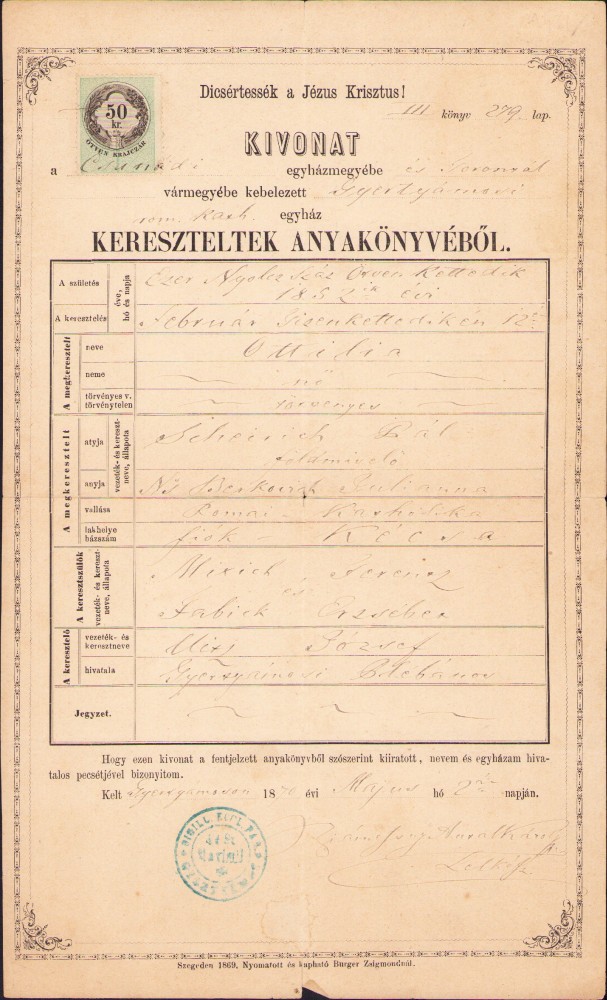 50
kr.
ÖTVEN KRAJCZÁR
Dicsértessék a Jézus Krisztus!
III könyv 279. lap.
KIVONAT
a Csanádi egyházmegyébe és
vármegyébe kebelezett
rom. kath. egyház
KERESZTELTEK ANYAKÖNYVÉBŐL.
A születés
A keresztelés
éve, hó és napja
Ezer Nyolcz Száz Ötven Kettedik
1852ik évi
Február Tizenkettedikén 12
A megkeresztelt
neve
Ottilia
neme
nő
törvényes v. törvénytelen
törvényes
A megkeresztelt
atyja
anyja
vezeték- és kereszt-neve, állapota
Pál
földmivelő
Julianna
vallása
Romai Katholika
lakhelye házszám
fiók Kécsa
A keresztszülők
vezeték- és kereszt-neve, állapota
Ferencz
és
Erzsébet
A keresztelő
vezeték- és keresztneve
József
hivatala
Plébános
Jegyzet.
Hogy ezen kivonat a fentjelzett anyakönyvből szószerint kiiratott, nevem és egyházam hiva-
talos pecsétjével bizonyitom.
Kelt 1870 évi Május hó napján.
Szegeden 1869. Nyomatott és kapható Burger Zsigmondnál.